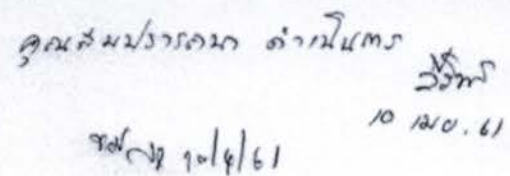 คุณสมปรารถนา ดำเนินการ
10 เม.ย. 61
10/4/61